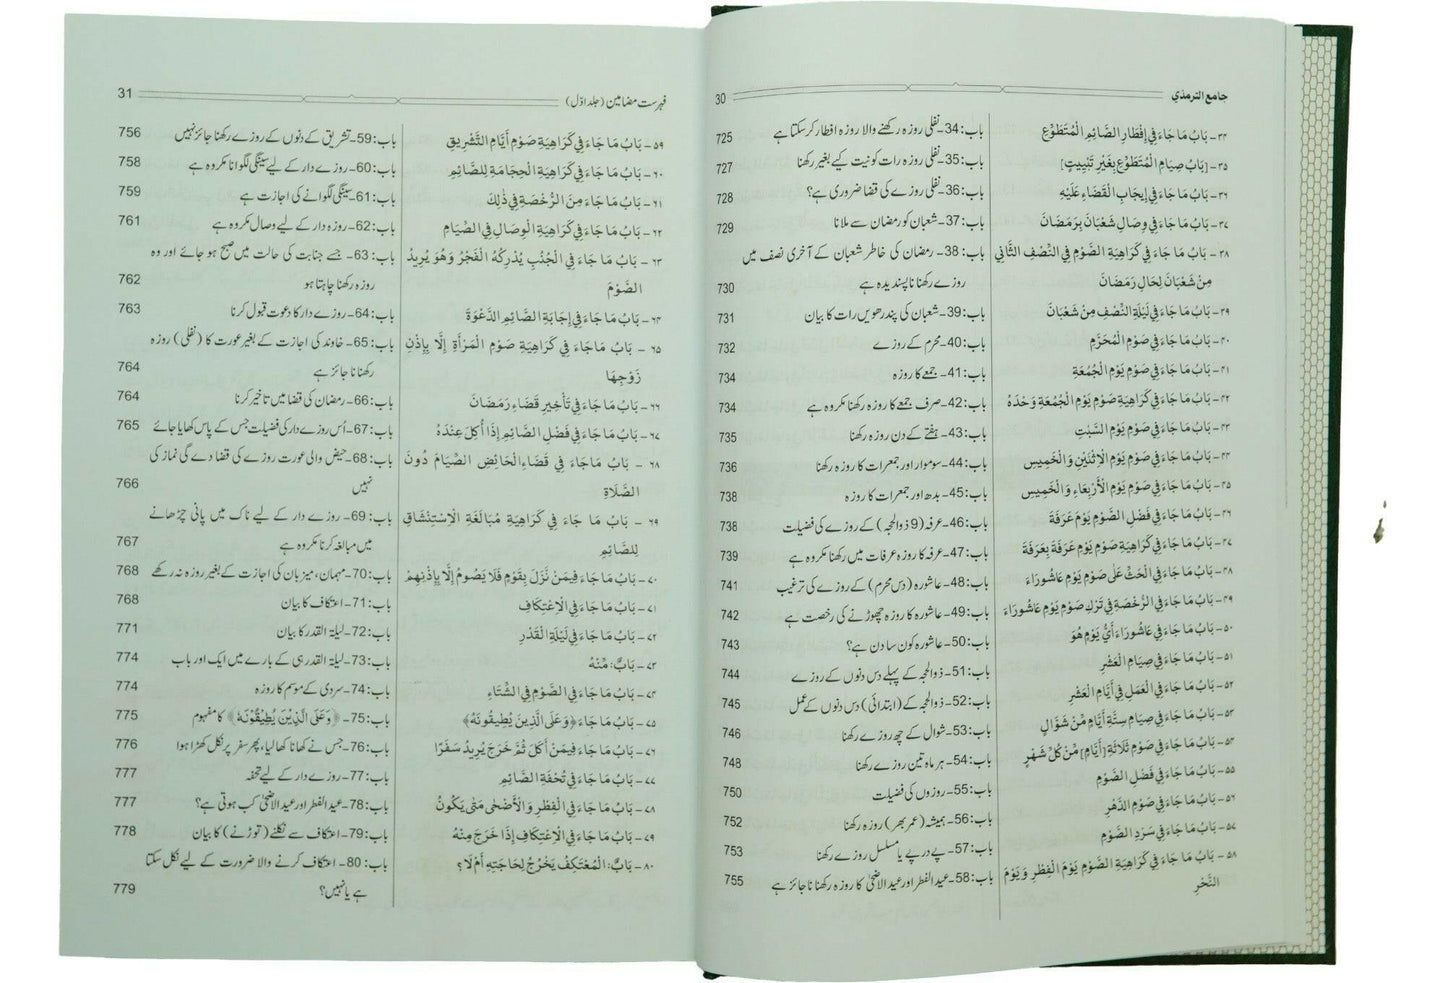 جامع الترمذي 30
٣٤ - بَابُ مَا جَاءَ فِي إِفْطَارِ الصَّائِمِ الْمُتَطَوِّعِ باب: 34- نفلی روزہ رکھنے والا روزہ افطار کر سکتا ہے 725
٣٥ - [بَابُ صِيَامِ الْمُتَطَوِّعِ بِغَيْرِ تَبْيِيتٍ] باب: 35- نفلی روزہ رات کو نیت کیے بغیر رکھنا 727
٣٦ - بَابُ مَا جَاءَ فِي إِيجَابِ الْقَضَاءِ عَلَيْهِ باب: 36- نفلی روزے کی قضا ضروری ہے؟ 728
٣٧ - بَابُ مَا جَاءَ فِي وِصَالِ شَعْبَانَ بِرَمَضَانَ باب: 37- شعبان کو رمضان سے ملانا 729
٣٨ - بَابُ مَا جَاءَ فِي كَرَاهِيَةِ الصَّوْمِ فِي النِّصْفِ الثَّانِي باب: 38- رمضان کی خاطر شعبان کے آخری نصف میں
مِنْ شَعْبَانَ لِحَالِ رَمَضَانَ روزے رکھنا ناپسندیدہ ہے 730
٣٩ - بَابُ مَا جَاءَ فِي لَيْلَةِ النِّصْفِ مِنْ شَعْبَانَ باب: 39- شعبان کی پندرھویں رات کا بیان 731
٤٠ - بَابُ مَا جَاءَ فِي صَوْمِ الْمُحَرَّمِ باب: 40- محرم کے روزے 732
٤١ - بَابُ مَا جَاءَ فِي صَوْمِ يَوْمِ الْجُمُعَةِ باب: 41- جمعے کا روزہ 734
٤٢ - بَابُ مَا جَاءَ فِي كَرَاهِيَةِ صَوْمِ يَوْمِ الْجُمُعَةِ وَحْدَهُ باب: 42- صرف جمعے کا روزہ رکھنا مکروہ ہے 734
٤٣ - بَابُ مَا جَاءَ فِي صَوْمِ يَوْمِ السَّبْتِ باب: 43- ہفتے کے دن روزہ رکھنا 735
٤٤ - بَابُ مَا جَاءَ فِي صَوْمِ يَوْمِ الْاِثْنَيْنِ وَالْخَمِيسِ باب: 44- سوموار اور جمعرات کا روزہ رکھنا 736
٤٥ - بَابُ مَا جَاءَ فِي صَوْمِ يَوْمِ الْأَرْبِعَاءِ وَالْخَمِيسِ باب: 45- بدھ اور جمعرات کا روزہ 738
٤٦ - بَابُ مَا جَاءَ فِي فَضْلِ الصَّوْمِ يَوْمَ عَرَفَةَ باب: 46- عرفہ (9 ذوالحجہ) کے روزے کی فضیلت 738
٤٧ - بَابُ مَا جَاءَ فِي كَرَاهِيَةِ صَوْمِ يَوْمِ عَرَفَةَ بِعَرَفَةَ باب: 47- عرفہ کا روزہ عرفات میں رکھنا مکروہ ہے 739
٤٨ - بَابُ مَا جَاءَ فِي الْحَثِّ عَلَى صَوْمِ يَوْمِ عَاشُورَاءَ باب: 48- عاشورہ (دس محرم) کے روزے کی ترغیب 741
٤٩ - بَابُ مَا جَاءَ فِي الرُّخْصَةِ فِي تَرْكِ صَوْمِ يَوْمِ عَاشُورَاءَ باب: 49- عاشورہ کا روزہ چھوڑنے کی رخصت ہے 742
٥٠ - بَابُ مَا جَاءَ فِي عَاشُورَاءَ أَيُّ يَوْمٍ هُوَ باب: 50- عاشورہ کون سا دن ہے؟ 743
٥١ - بَابُ مَا جَاءَ فِي صِيَامِ الْعَشْرِ باب: 51- ذوالحجہ کے پہلے دس دنوں کے روزے 744
٥٢ - بَابُ مَا جَاءَ فِي الْعَمَلِ فِي أَيَّامِ الْعَشْرِ باب: 52- ذوالحجہ کے (ابتدائی) دس دنوں کے عمل 745
٥٣ - بَابُ مَا جَاءَ فِي صِيَامِ سِتَّةِ أَيَّامٍ مِنْ شَوَّالٍ باب: 53- شوال کے چھ روزے رکھنا 746
٥٤ - بَابُ مَا جَاءَ فِي صَوْمِ ثَلَاثَةِ [أَيَّامٍ] مِنْ كُلِّ شَهْرٍ باب: 54- ہر ماہ تین روزے رکھنا 748
٥٥ - بَابُ مَا جَاءَ فِي فَضْلِ الصَّوْمِ باب: 55- روزوں کی فضیلت 750
٥٦ - بَابُ مَا جَاءَ فِي صَوْمِ الدَّهْرِ باب: 56- ہمیشہ (عمر بھر) روزہ رکھنا 752
٥٧ - بَابُ مَا جَاءَ فِي سَرْدِ الصَّوْمِ باب: 57- پے در پے یا مسلسل روزے رکھنا 753
٥٨ - بَابُ مَا جَاءَ فِي كَرَاهِيَةِ الصَّوْمِ يَوْمَ الْفِطْرِ وَيَوْمَ باب: 58- عیدالفطر اور عیدالاضحیٰ کا روزہ رکھنا ناجائز ہے 755
النَّحْرِ
فہرست مضامین (جلد اوّل) 31
٥٩ - بَابُ مَا جَاءَ فِي كَرَاهِيَةِ صَوْمِ أَيَّامِ التَّشْرِيقِ باب: 59- تشریق کے دنوں کے روزے رکھنا جائز نہیں 756
٦٠ - بَابُ مَا جَاءَ فِي كَرَاهِيَةِ الْحِجَامَةِ لِلصَّائِمِ باب: 60- روزے دار کے لیے سینگی لگوانا مکروہ ہے 758
٦١ - بَابُ مَا جَاءَ مِنَ الرُّخْصَةِ فِي ذٰلِكَ باب: 61- سینگی لگوانے کی اجازت ہے 759
٦٢ - بَابُ مَا جَاءَ فِي كَرَاهِيَةِ الْوِصَالِ فِي الصِّيَامِ باب: 62- روزہ دار کے لیے وصال مکروہ ہے 761
٦٣ - بَابُ مَا جَاءَ فِي الْجُنُبِ يُدْرِكُهُ الْفَجْرُ وَهُوَ يُرِيدُ باب: 63- جسے جنابت کی حالت میں صبح ہو جائے اور وہ
الصَّوْمَ روزہ رکھنا چاہتا ہو 762
٦٤ - بَابُ مَا جَاءَ فِي إِجَابَةِ الصَّائِمِ الدَّعْوَةَ باب: 64- روزے دار کا دعوت قبول کرنا 763
٦٥ - بَابُ مَا جَاءَ فِي كَرَاهِيَةِ صَوْمِ الْمَرْأَةِ إِلَّا بِإِذْنِ باب: 65- خاوند کی اجازت کے بغیر عورت کا (نفلی) روزہ
زَوْجِهَا رکھنا ناجائز ہے 764
٦٦ - بَابُ مَا جَاءَ فِي تَأْخِيرِ قَضَاءِ رَمَضَانَ باب: 66- رمضان کی قضا میں تاخیر کرنا 764
٦٧ - بَابُ مَا جَاءَ فِي فَضْلِ الصَّائِمِ إِذَا أُكِلَ عِنْدَهُ باب: 67- اُس روزے دار کی فضیلت جس کے پاس کھایا جائے 765
٦٨ - بَابُ مَا جَاءَ فِي قَضَاءِ الْحَائِضِ الصِّيَامَ دُونَ باب: 68- حیض والی عورت روزے کی قضا دے گی نماز کی
الصَّلَاةِ نہیں 766
٦٩ - بَابُ مَا جَاءَ فِي كَرَاهِيَةِ مُبَالَغَةِ الْاِسْتِنْشَاقِ باب: 69- روزے دار کے لیے ناک میں پانی چڑھانے
لِلصَّائِمِ میں مبالغہ کرنا مکروہ ہے 767
٧٠ - بَابُ مَا جَاءَ فِيمَنْ نَزَلَ بِقَوْمٍ فَلَا يَصُومُ إِلَّا بِإِذْنِهِمْ باب: 70- مہمان، میزبان کی اجازت کے بغیر روزہ نہ رکھے 768
٧١ - بَابُ مَا جَاءَ فِي الْاِعْتِكَافِ باب: 71- اعتکاف کا بیان 768
٧٢ - بَابُ مَا جَاءَ فِي لَيْلَةِ الْقَدْرِ باب: 72- لیلۃ القدر کا بیان 771
٧٣ - بَابٌ: مِنْهُ باب: 73- لیلۃ القدر ہی کے بارے میں ایک اور باب 774
٧٤ - بَابُ مَا جَاءَ فِي الصَّوْمِ فِي الشِّتَاءِ باب: 74- سردی کے موسم کا روزہ 774
٧٥ - بَابُ مَا جَاءَ ﴿وَعَلَى الَّذِينَ يُطِيقُونَهُ﴾ باب: 75- ﴿وَعَلَى الَّذِيْنَ يُطِيْقُوْنَهٗ﴾ کا مفہوم 775
٧٦ - بَابُ مَا جَاءَ فِيمَنْ أَكَلَ ثُمَّ خَرَجَ يُرِيدُ سَفَرًا باب: 76- جس نے کھانا کھا لیا، پھر سفر پر نکل کھڑا ہوا 776
٧٧ - بَابُ مَا جَاءَ فِي تُحْفَةِ الصَّائِمِ باب: 77- روزے دار کے لیے تحفہ 777
٧٨ - بَابُ مَا جَاءَ فِي الْفِطْرِ وَالْأَضْحٰى مَتٰى يَكُونُ باب: 78- عیدالفطر اور عیدالاضحیٰ کب ہوتی ہے؟ 777
٧٩ - بَابُ مَا جَاءَ فِي الْاِعْتِكَافِ إِذَا خَرَجَ مِنْهُ باب: 79- اعتکاف سے نکلنے (توڑنے) کا بیان 778
٨٠ - بَابٌ: الْمُعْتَكِفُ يَخْرُجُ لِحَاجَتِهِ أَمْ لَا؟ باب: 80- اعتکاف کرنے والا ضرورت کے لیے نکل سکتا
ہے یا نہیں؟ 779